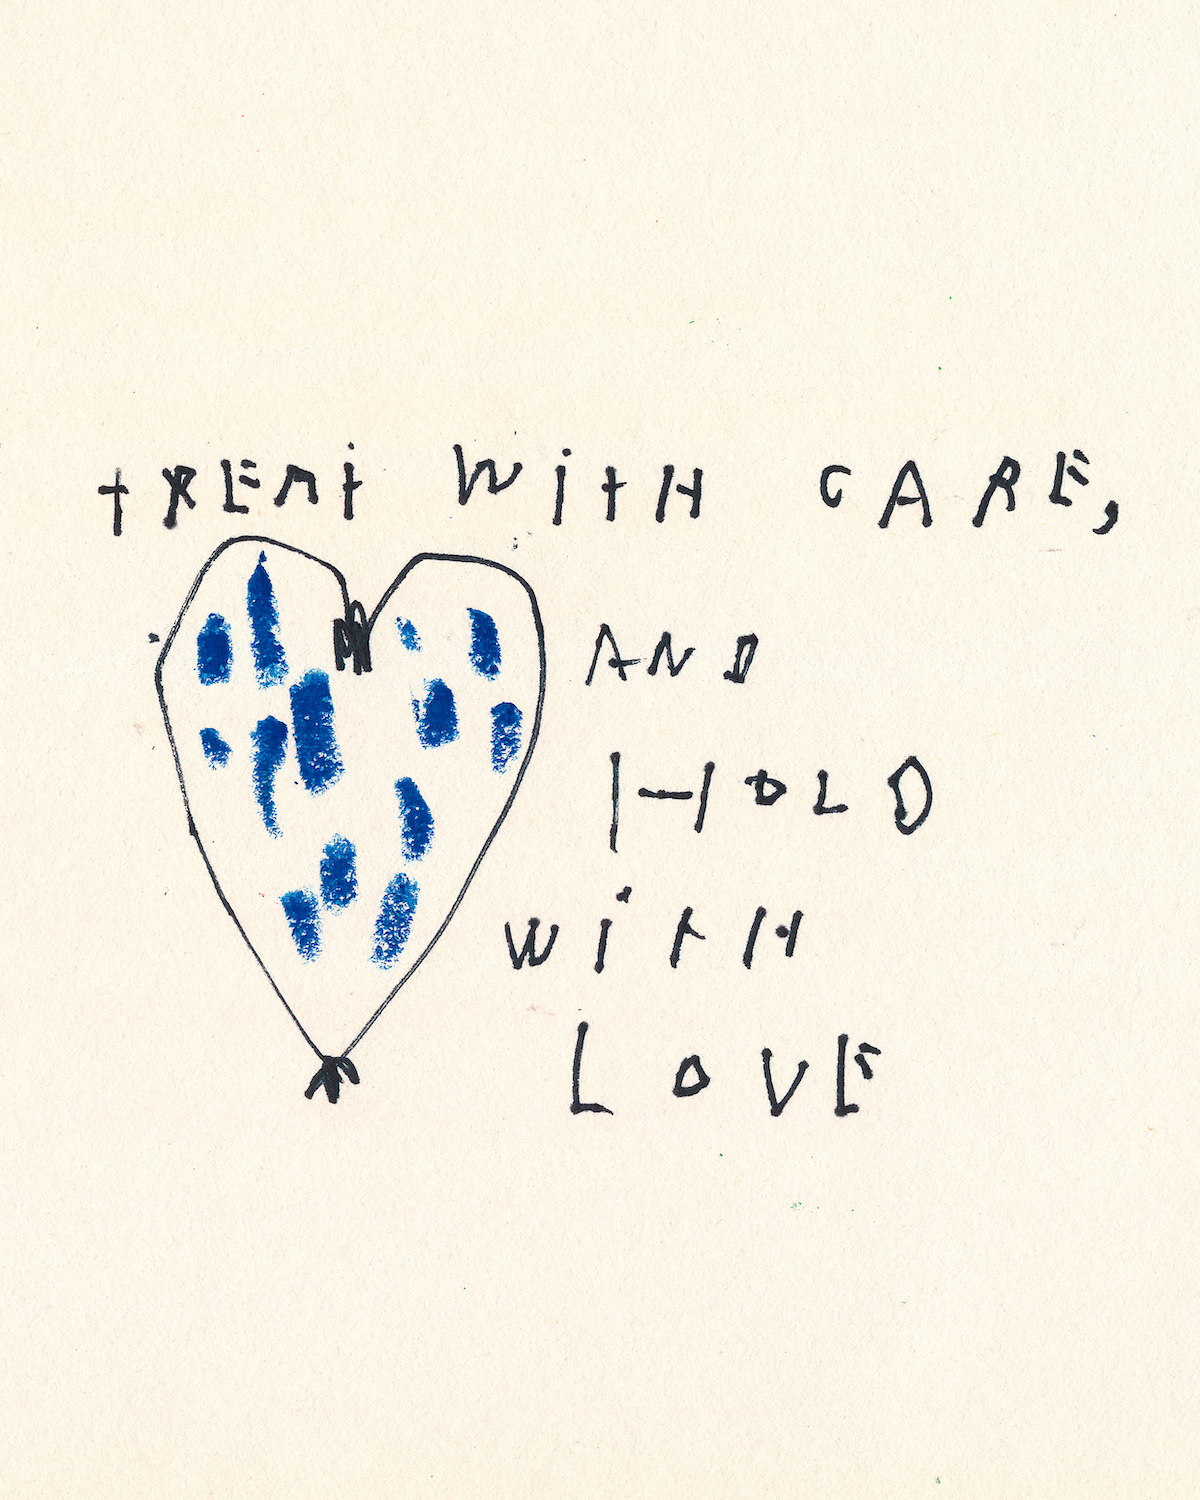 tREAt WitH CARE,
AND
HOLD
WitH
LOVE